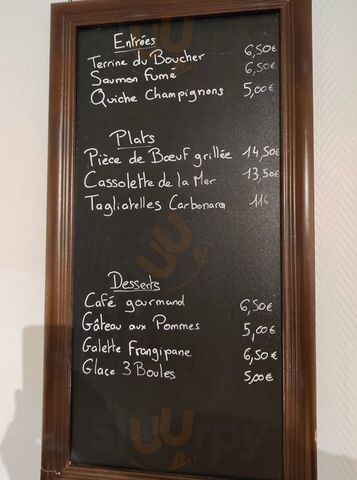 Entrées
Terrine du Boucher 6,50€
Saumon Fumé 6,50€
Quiche Champignons 5,00€
Plats
Pièce de Bœuf grillée 14,50€
Cassolette de la Mer 13,50€
Tagliatelles Carbonara 11€
Desserts
Café gourmand 6,50€
Gâteau aux Pommes 5,00€
Galette Frangipane 6,50€
Glace 3 Boules 5,00€